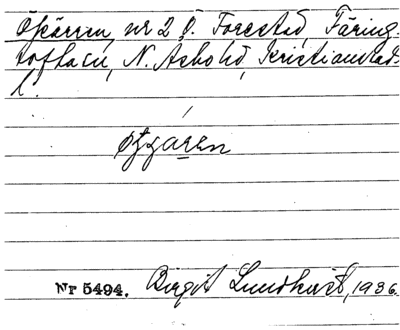 Öskärren, nr 2 Ö. Forestad, Färing-
toftacn, N. Åsbohd, Kristianstad.
l.
øʒʒaren
Nr 5494. Birgit Lundkvist, 1936.